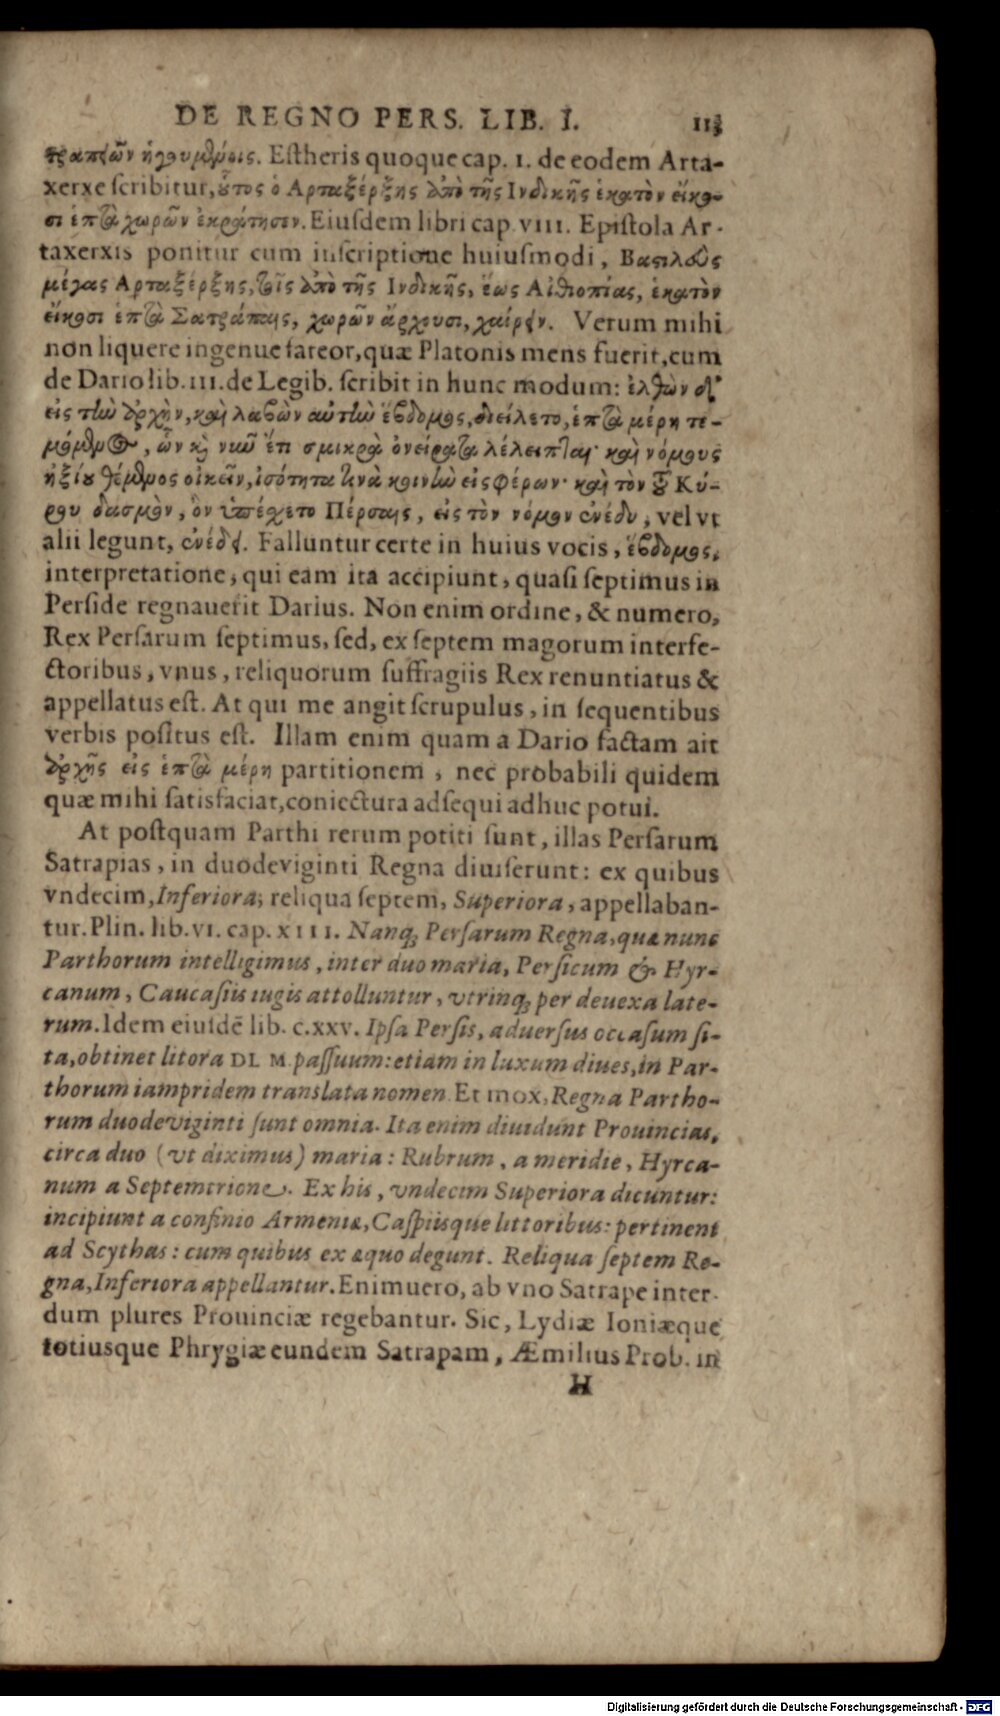 DE REGNO PERS. LIB. I. 113
τραπιῶν ἡγουμένοις. Estheris quoque cap. 1. de eodem Arta-
xerxe scribitur, οὗτος ὁ Αρταξέρξης ἀπὸ τῆς Ινδικῆς ἑκατὸν εἴκο-
σι ἑπτὰ χωρῶν ἐκράτησεν. Eiusdem libri cap VIII. Epistola Ar-
taxerxis ponitur cum inscriptione huiusmodi, Βασιλεὺς
μέγας Αρταξέρξης, τοῖς ἀπὸ τῆς Ινδικῆς, ἕως Αἰθιοπίας, ἑκατὸν
εἴκοσι ἑπτὰ Σατράπαις, χωρῶν ἄρχουσι, χαίρειν. Verum mihi
non liquere ingenue fateor, quæ Platonis mens fuerit, cum
de Dario lib. III. de Legib. scribit in hunc modum: ἐλθὼν δ᾽
εἰς τὴν ἀρχὴν, καὶ λαβὼν αὐτὴν ἕβδομος, διείλετο, ἑπτὰ μέρη τε-
μόμενος, ὧν καὶ νῦν ἔτι σμικρὰ ὀνείρατα λέλειπται· καὶ νόμους
ἠξίου θέμενος οἰκεῖν, ἰσότητα τινὰ κοινὴν εἰσφέρων· καὶ τὸν τοῦ Κύ-
ρου δασμὸν, ὃν ὑπέχετο Πέρσαις, εἰς τὸν νόμον ἐνέδυ, vel vt
alii legunt, ἐνέδει. Falluntur certe in huius vocis, ἕβδομος,
interpretatione, qui eam ita accipiunt, quasi septimus in
Perside regnauerit Darius. Non enim ordine, & numero,
Rex Persarum septimus, sed, ex septem magorum interfe-
ctoribus, vnus, reliquorum suffragiis Rex renuntiatus &
appellatus est. At qui me angit scrupulus, in sequentibus
verbis positus est. Illam enim quam a Dario factam ait
ἀρχῆς εἰς ἑπτὰ μέρη partitionem, nec probabili quidem
quæ mihi satisfaciat, coniectura adsequi adhuc potui.
At postquam Parthi rerum potiti sunt, illas Persarum
Satrapias, in duodeviginti Regna diuiserunt: ex quibus
vndecim, Inferiora; reliqua septem, Superiora, appellaban-
tur. Plin. lib. VI. cap. XIII. Nanq; Persarum Regna, quæ nunc
Parthorum intelligimus, inter duo maria, Persicum & Hyr-
canum, Caucasiis iugis attolluntur, vtrinq; per deuexa late-
rum. Idem eiusdē lib. c. XXV. Ipsa Persis, aduersus occasum si-
ta, obtinet litora DL M. passuum: etiam in luxum diues, in Par-
thorum iampridem translata nomen. Et mox, Regna Partho-
rum duodeviginti sunt omnia. Ita enim diuidunt Prouincias,
circa duo (vt diximus) maria: Rubrum, a meridie, Hyrca-
num a Septemtrione. Ex his, vndecim Superiora dicuntur:
incipiunt a confinio Armeniæ, Caspiisque littoribus: pertinent
ad Scythas: cum quibus ex æquo degunt. Reliqua septem Re-
gna, Inferiora appellantur. Enimuero, ab vno Satrape inter-
dum plures Prouinciæ regebantur. Sic, Lydiæ Ioniæque
totiusque Phrygiæ eundem Satrapam, Æmilius Prob. in
H
Digitalisierung gefördert durch die Deutsche Forschungsgemeinschaft - DFG